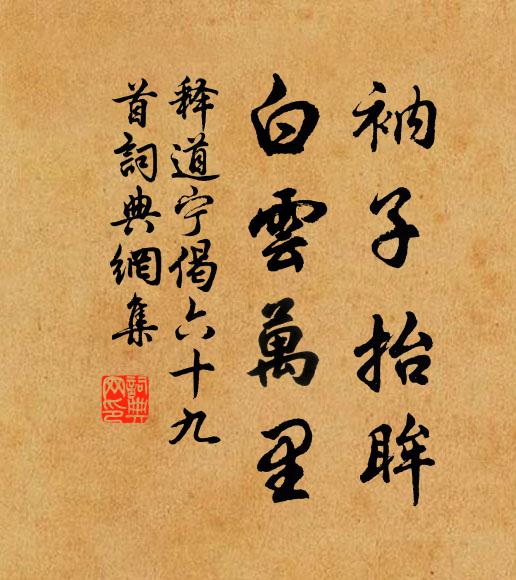 衲子抬眸
白雲萬里
释道宁偈六十九
首詞典網集
詞典
网印